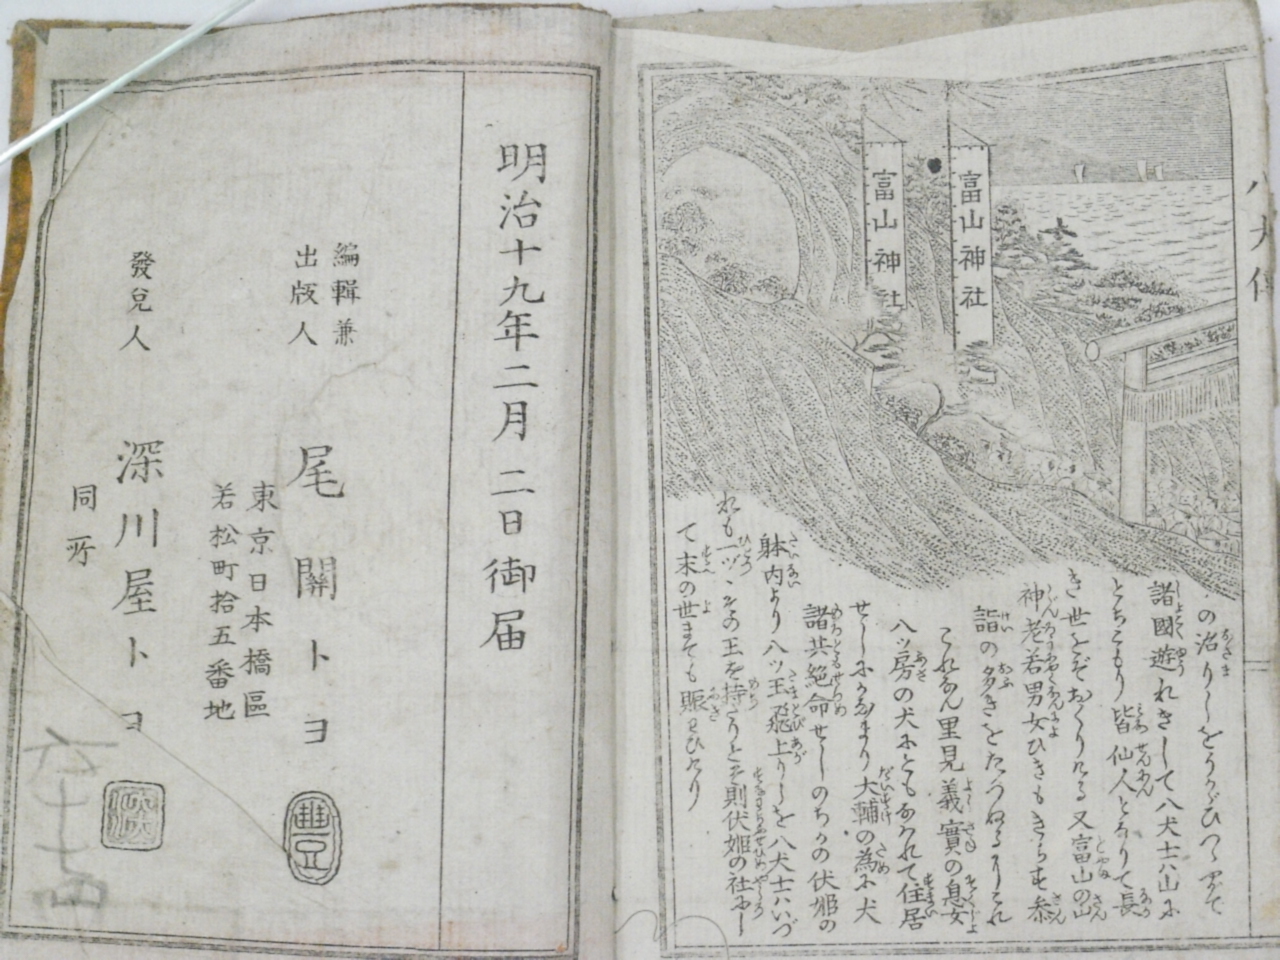 八犬傳
富山神社
富山神社
の治りしをうかゞひつゝ
諸國遊れきして八犬士ハ山に
とぢこもり皆仙人となりて長
き世をぞおくりける又富山の山
神老若男女ひきもきらず参
詣の多きをたづぬるにこれ
これなん里見義實の息女
八ッ房の犬にともなハれて住居
大輔の為に犬
諸共絶命せしのちかの伏姫の
躰内より八ッ玉飛上りしを八犬士ハいづ
れも一ッ
則伏姫の社に
て末の世までも賑ひけり
明治十九年二月二日御届
編輯兼
出版人
尾關トヨ
東京日本橋區
若松町拾五番地
發兌人
深川屋トヨ
同所
豊
六十七